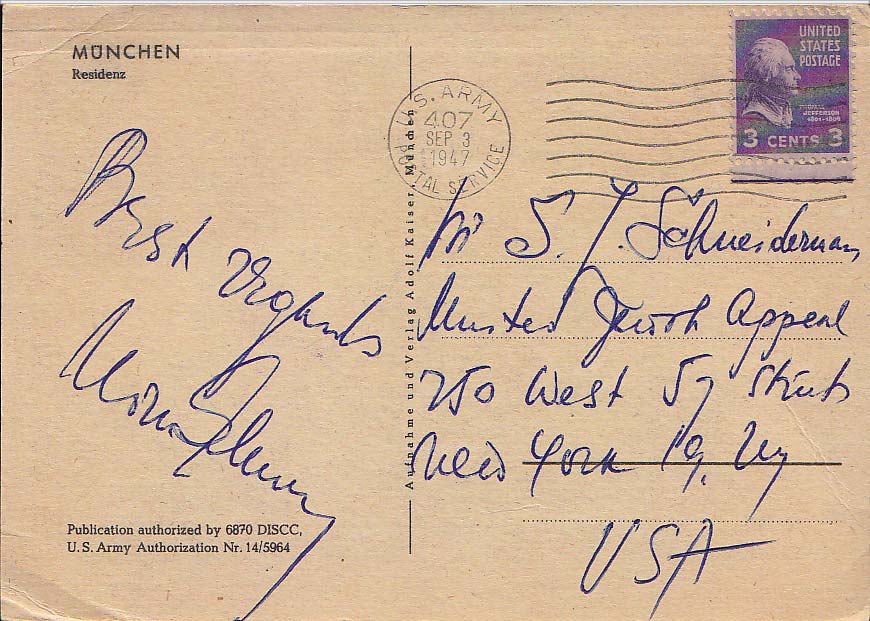 MÜNCHEN
Residenz
U.S. ARMY
407
SEP 3
1947
POSTAL SERVICE
UNITED
STATES
POSTAGE
JEFFERSON
1801-1809
3 CENTS 3
Best regards
Aufnahme und Verlag Adolf Kaiser, München
Mr S. J. Schneiderman
United Jewish Appeal
250 West 57 Street
New York 19, Ny
USA
Publication authorized by 6870 DISCC,
U. S. Army Authorization Nr. 14/5964